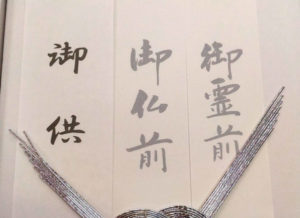 御霊前
御仏前
御供